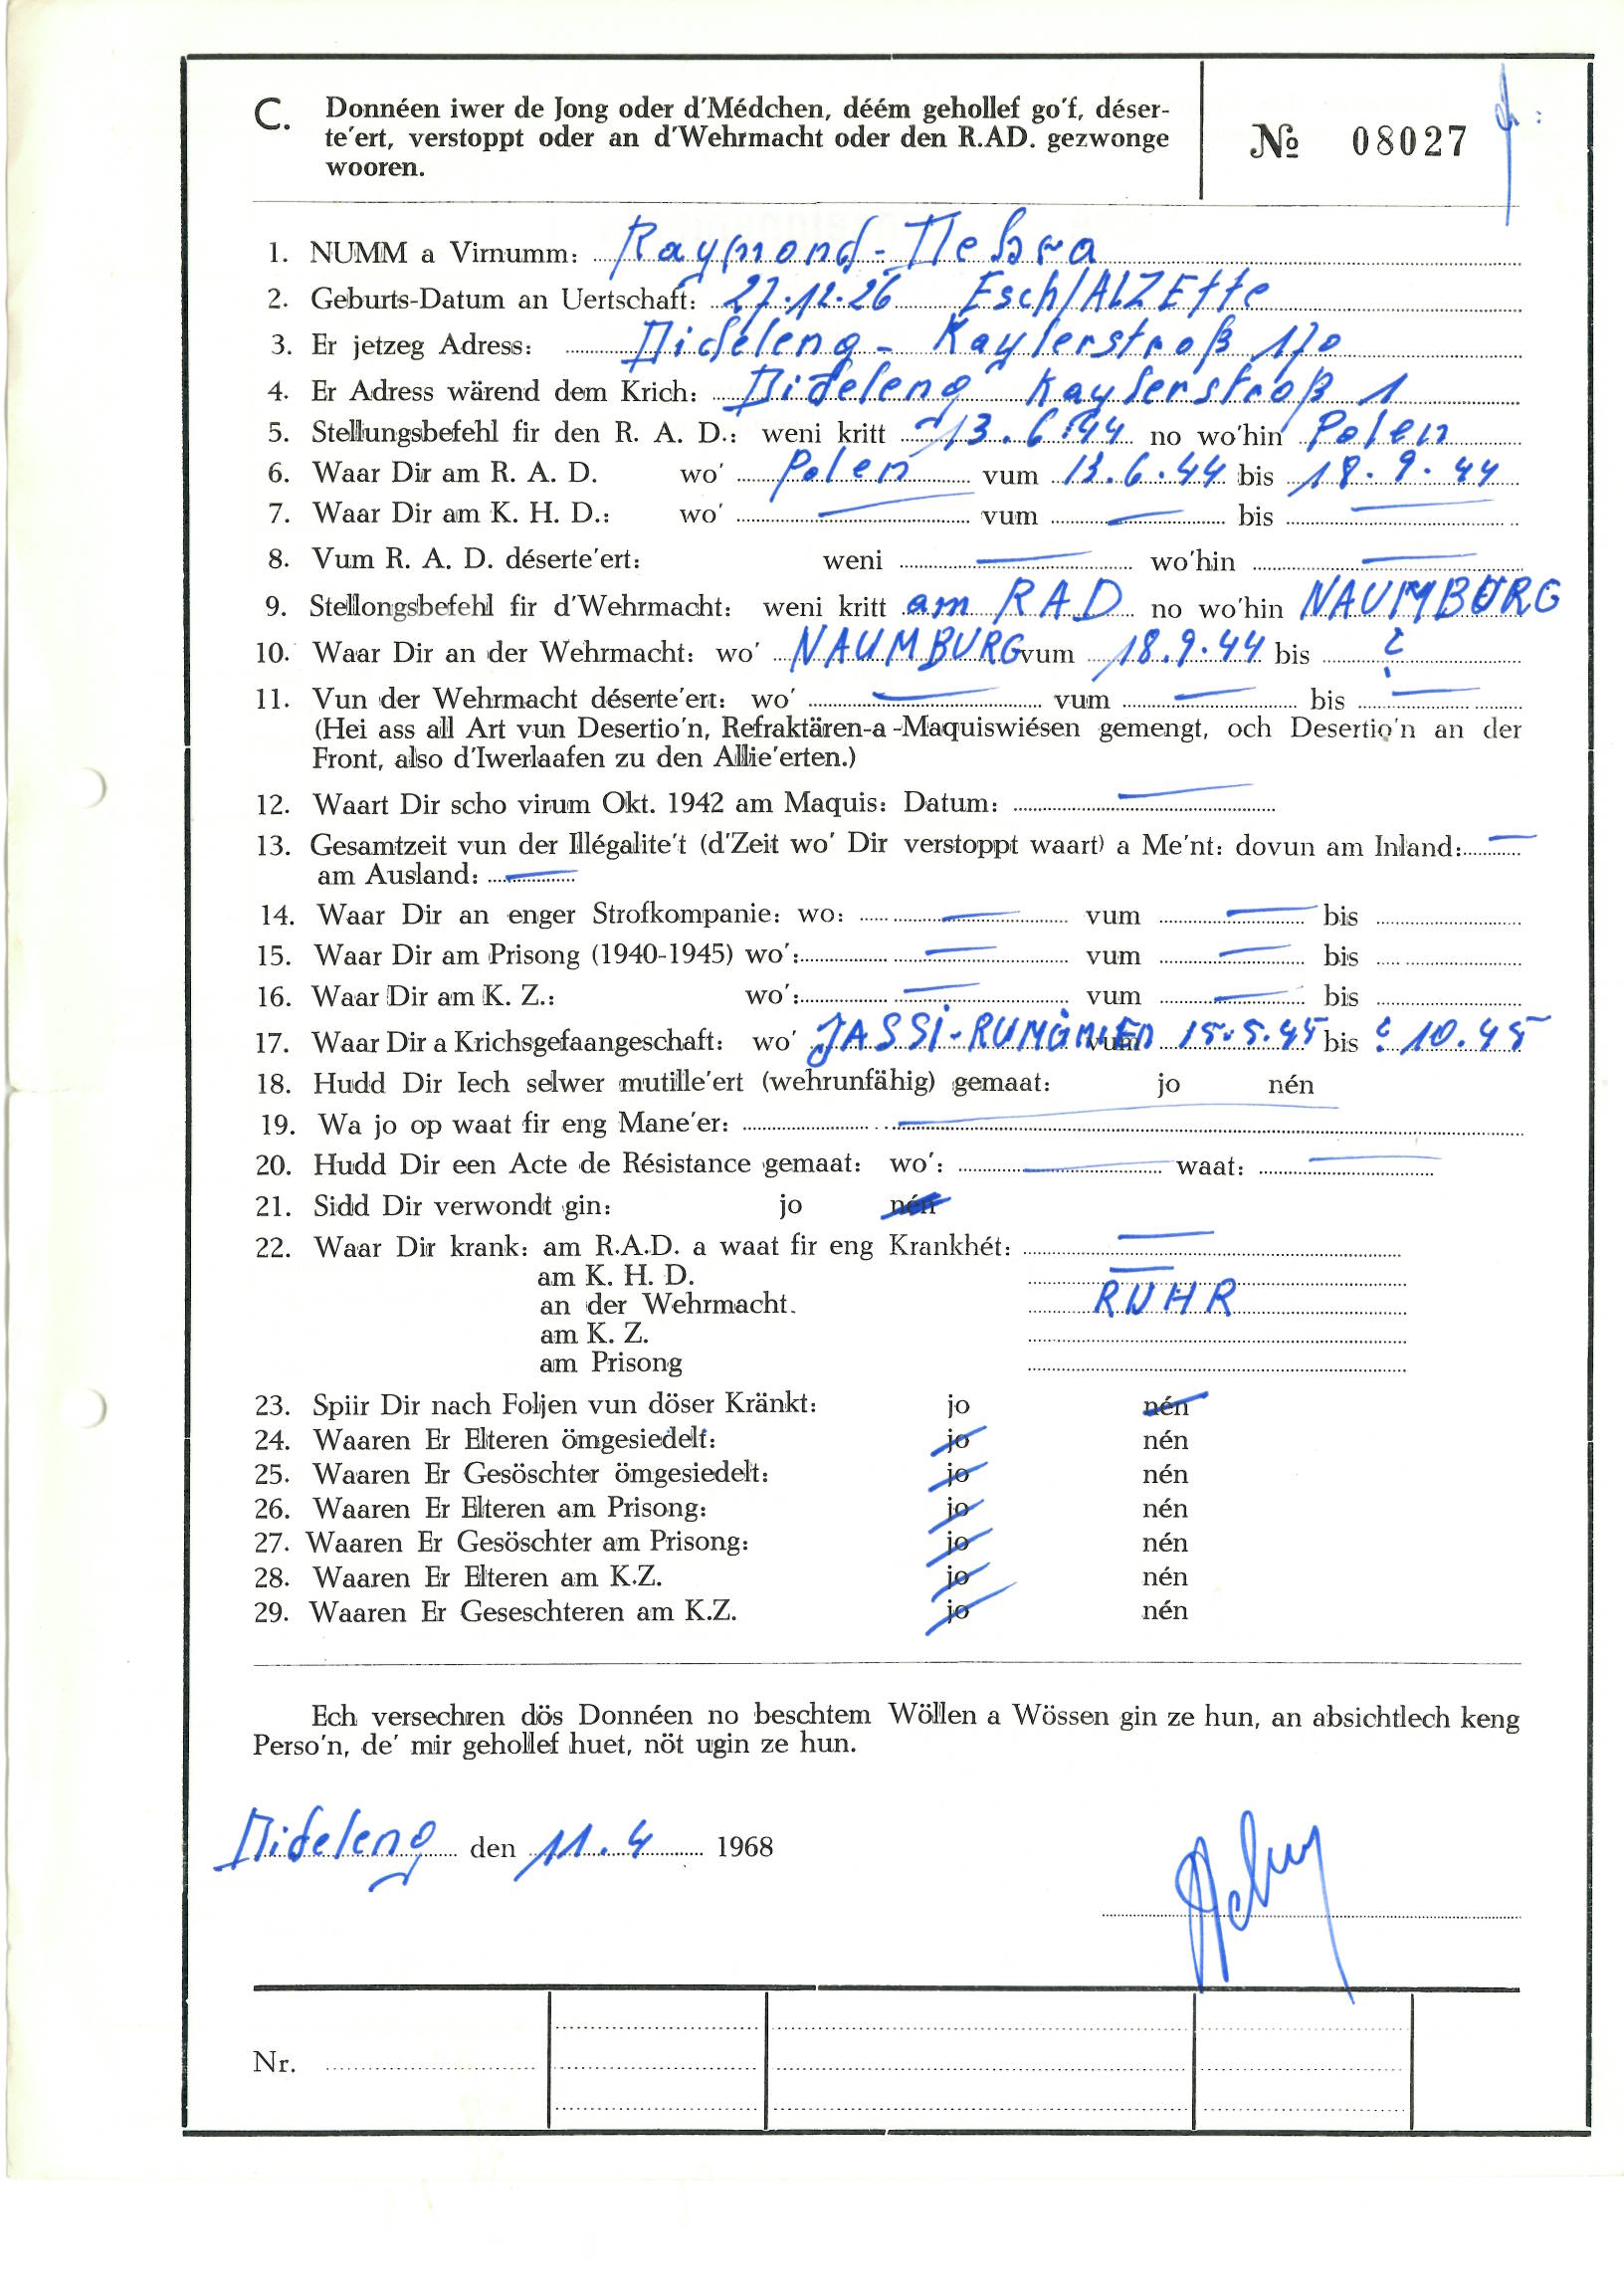 C. Donnéen iwer de Jong oder d'Médchen, déém gehollef go'f, déser-
te'ert, verstoppt oder an d'Wehrmacht oder den R.AD. gezwonge
wooren.
№ 08027
1. NUMM a Virnumm: Raymond-
2. Geburts-Datum an Uertschaft: 27.12.26 Esch/ALZEtte
3. Er jetzeg Adress: Dideleng - Kaylerstroß 170
4. Er Adress wärend dem Krich: Dideleng Kaylerstroß 1
5. Stellungsbefehl fir den R. A. D.: weni kritt 13.6.44 no wo'hin Polen
6. Waar Dir am R. A. D. wo' Polen vum 13.6.44 bis 18.9.44
7. Waar Dir am K. H. D.: wo' — vum — bis —
8. Vum R. A. D. déserte'ert: weni — wo'hin —
9. Stellongsbefehl fir d'Wehrmacht: weni kritt am RAD no wo'hin NAUMBURG
10. Waar Dir an der Wehrmacht: wo' NAUMBURG vum 18.9.44 bis ?
11. Vun der Wehrmacht déserte'ert: wo' — vum — bis —
(Hei ass all Art vun Desertio'n, Refraktären-a-Maquiswiésen gemengt, och Desertio'n an der
Front, also d'Iwerlaafen zu den Allie'erten.)
12. Waart Dir scho virum Okt. 1942 am Maquis: Datum: —
13. Gesamtzeit vun der Illégalite't (d'Zeit wo' Dir verstoppt waart) a Me'nt: dovun am Inland: —
am Ausland: —
14. Waar Dir an enger Strofkompanie: wo: — vum — bis
15. Waar Dir am Prisong (1940-1945) wo': — vum — bis
16. Waar Dir am K. Z.: wo': — vum — bis
17. Waar Dir a Krichsgefaangeschaft: wo' JASSI-RUMÄNIEN vum 15.5.45 bis ? 10.45
18. Hudd Dir Iech selwer mutille'ert (wehrunfähig) gemaat: jo nén
19. Wa jo op waat fir eng Mane'er: —
20. Hudd Dir een Acte de Résistance gemaat: wo': — waat: —
21. Sidd Dir verwondt gin: jo nén
22. Waar Dir krank: am R.A.D. a waat fir eng Krankhét: —
am K. H. D. —
an der Wehrmacht. RUHR
am K. Z.
am Prisong
23. Spiir Dir nach Foljen vun döser Kränkt: jo nén
24. Waaren Er Elteren ömgesiedelt: jo nén
25. Waaren Er Gesöschter ömgesiedelt: jo nén
26. Waaren Er Elteren am Prisong: jo nén
27. Waaren Er Gesöschter am Prisong: jo nén
28. Waaren Er Elteren am K.Z. jo nén
29. Waaren Er Geseschteren am K.Z. jo nén
Ech versechren dös Donnéen no beschtem Wöllen a Wössen gin ze hun, an absichtlech keng
Perso'n, de' mir gehollef huet, nöt ugin ze hun.
Dideleng den 11.4 1968
Nr.